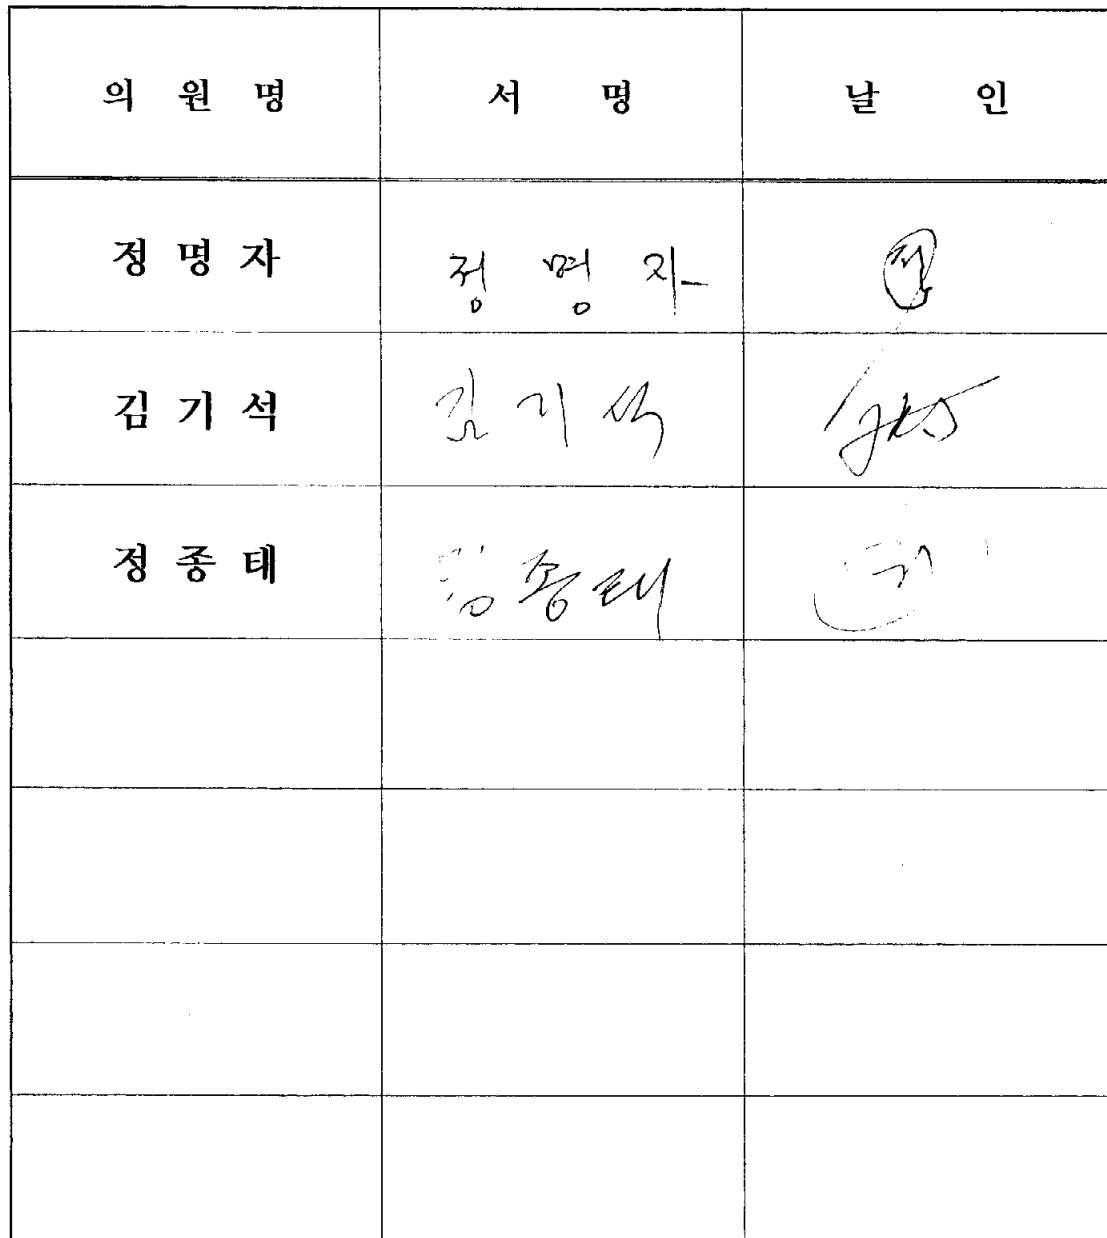 의 원 명 서 명 날 인
정 명 자 정 명 자 정
김 기 석 김 기 석
정 종 태 정 종 태